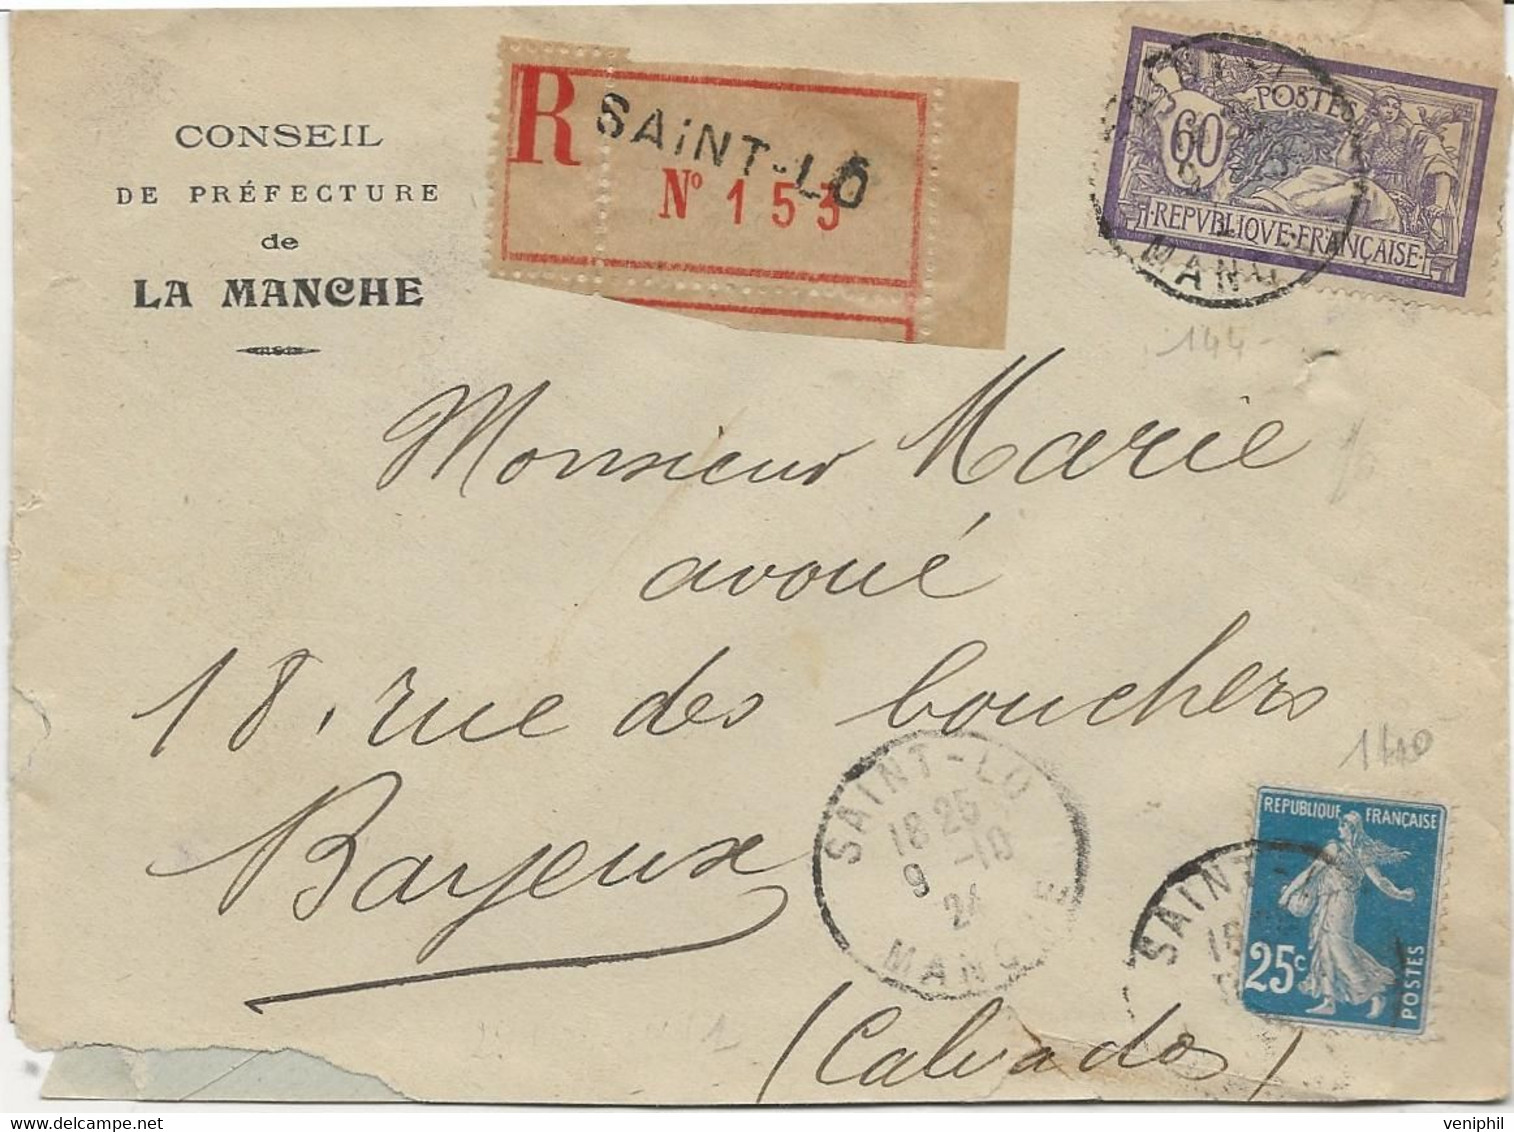 CONSEIL
DE PRÉFECTURE
de
LA MANCHE
R SAINT-LÔ
Nº 153
60 POSTES
RÉPVBLIQVE FRANÇAISE
MAN
144
Monsieur Marie
avoué
18, rue des bouchers
Bayeux
(Calvados)
SAINT-LO
18 25
9 -10
24
MANCHE
1440
REPUBLIQUE FRANÇAISE
25c
POSTES
SAINT
18
veniphil